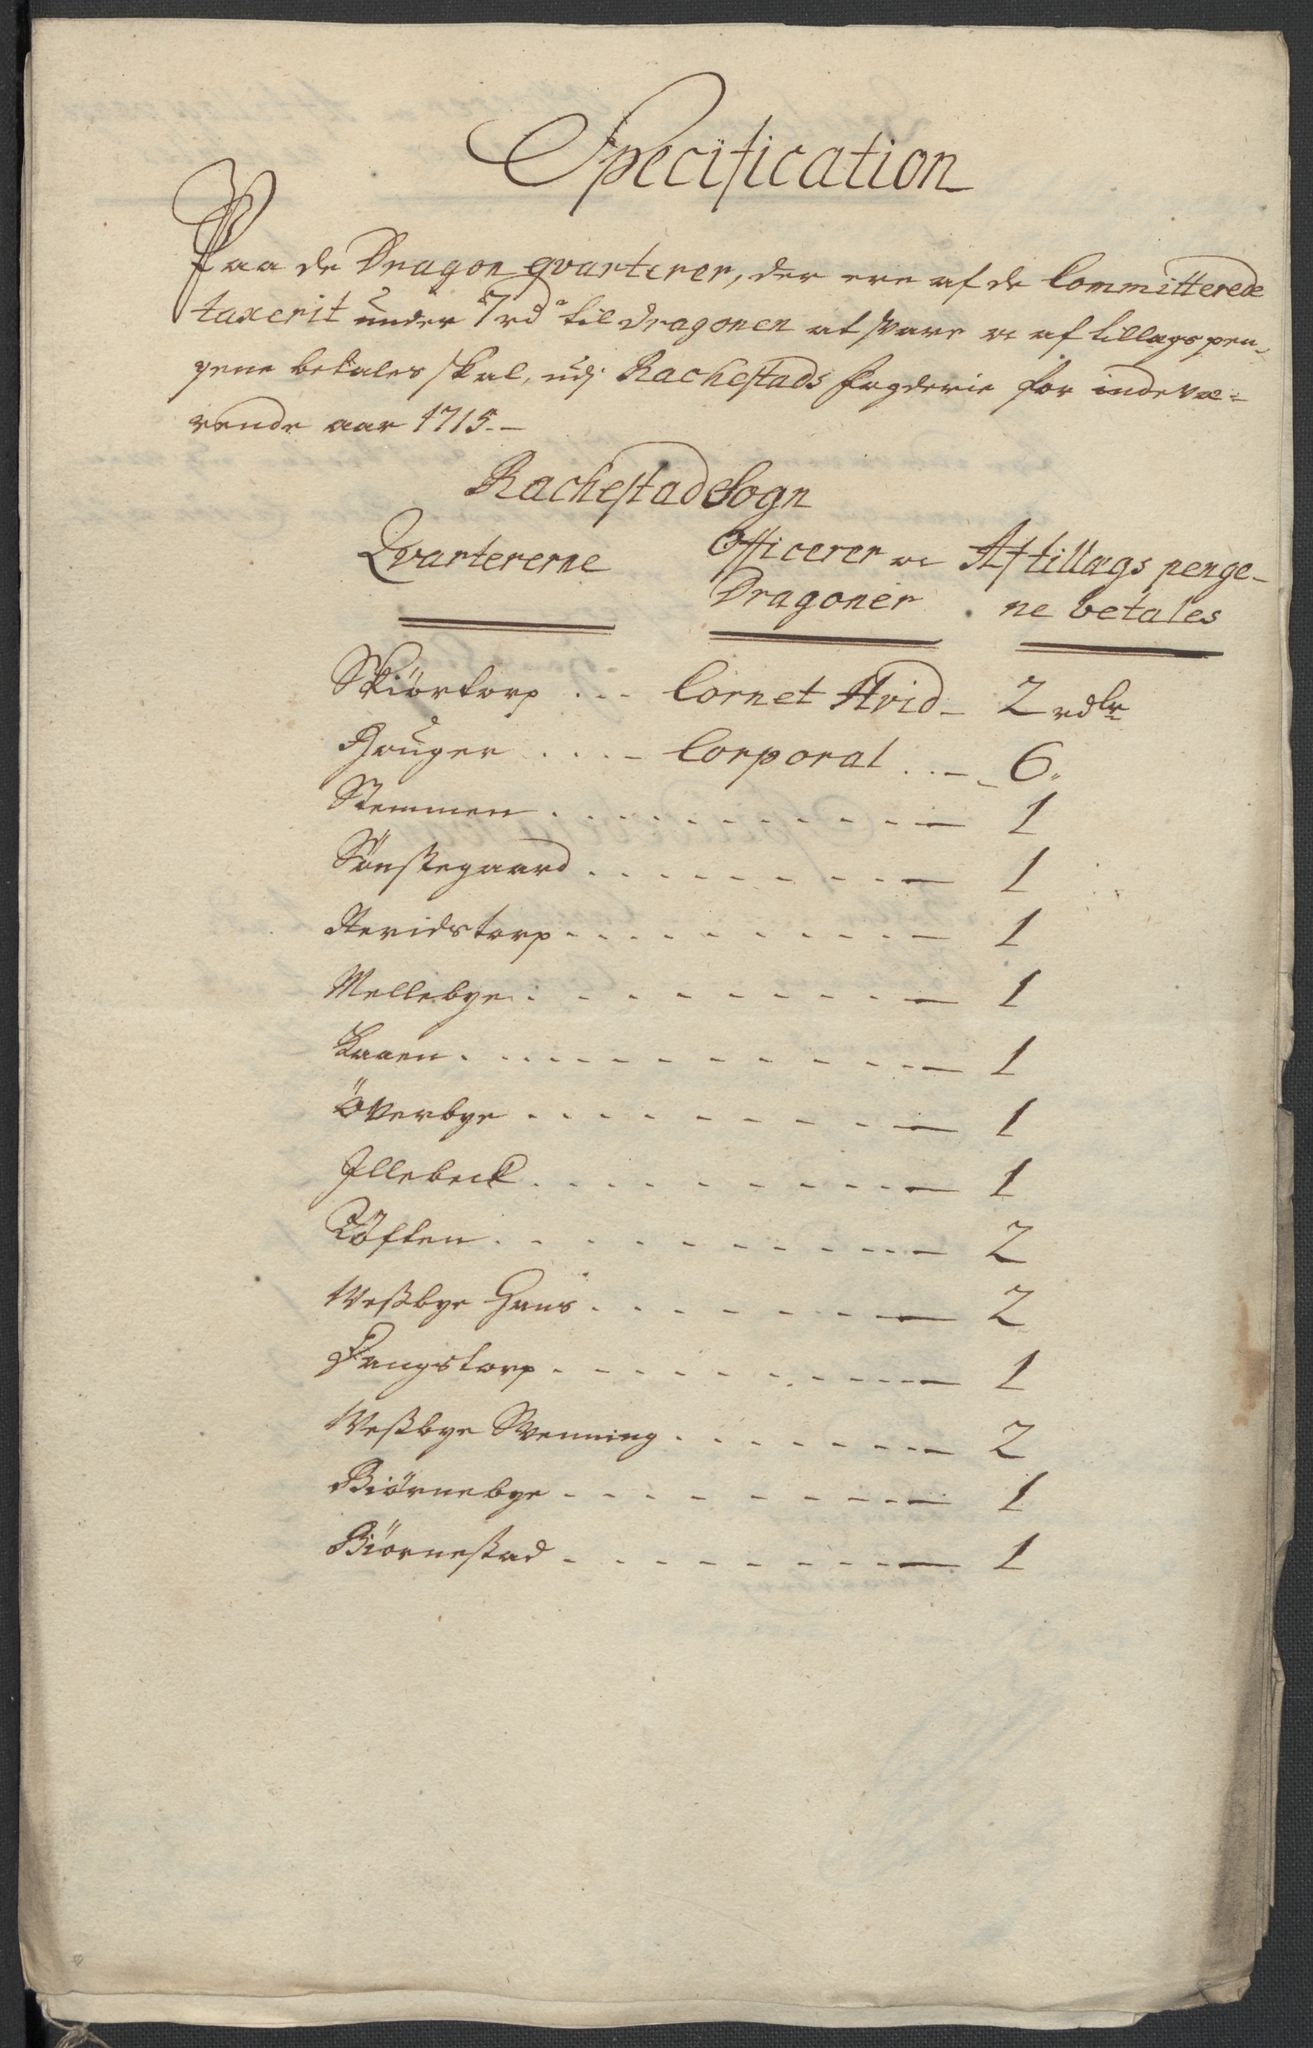 Specification
Paa de Dragon qvarterer, der ere af de Committerede
taxerit under 7 rd til dragonen at svare oc af tillags pen-
gene betales skal, udj Rachestads fogderie for indevæ-
rende aar 1715.-
Rachestad Sogn
Qvartererne Officerer oc Af tillags penge-
Dragoner ne betales
Skiörtorp Cornet Hvid 2 rdlr
Gruger Corporal 6
Stemmen 1
Sönstegaard 1
1
Mellebye 1
Kaaen 1
Överbye 1
Illebeck 1
Töften 2
Westbye Hans 2
Pangstorp 1
Westbye Svenning 2
Biörnebye 1
Biörnestad 1